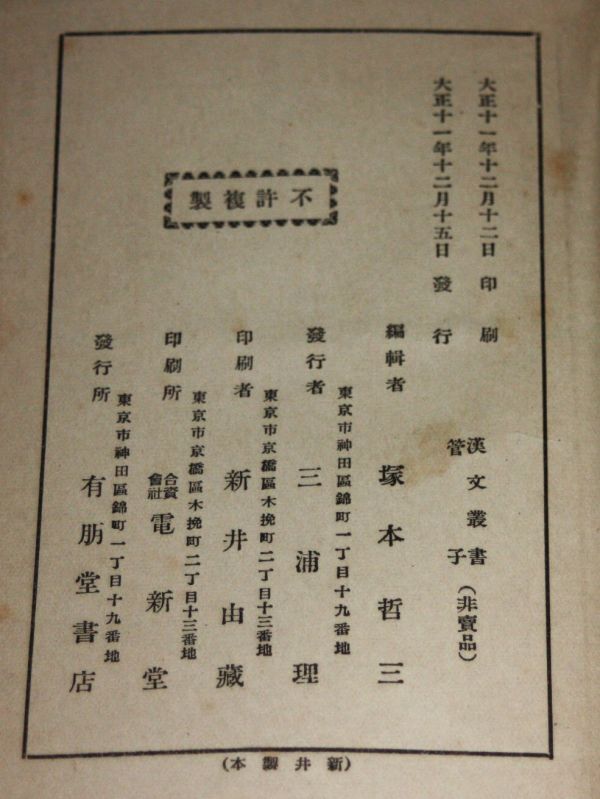 大正十一年十二月十二日 印刷
大正十一年十二月十五日 發行
漢文叢書
管子
(非賣品)
不許複製
編輯者 塚本哲三
東京市神田區錦町一丁目十九番地
發行者 三浦理
東京市京橋區木挽町二丁目十三番地
印刷者 新井由藏
東京市京橋區木挽町二丁目十三番地
印刷所 合資會社 電新堂
東京市神田區錦町一丁目十九番地
發行所 有朋堂書店
(新井製本)